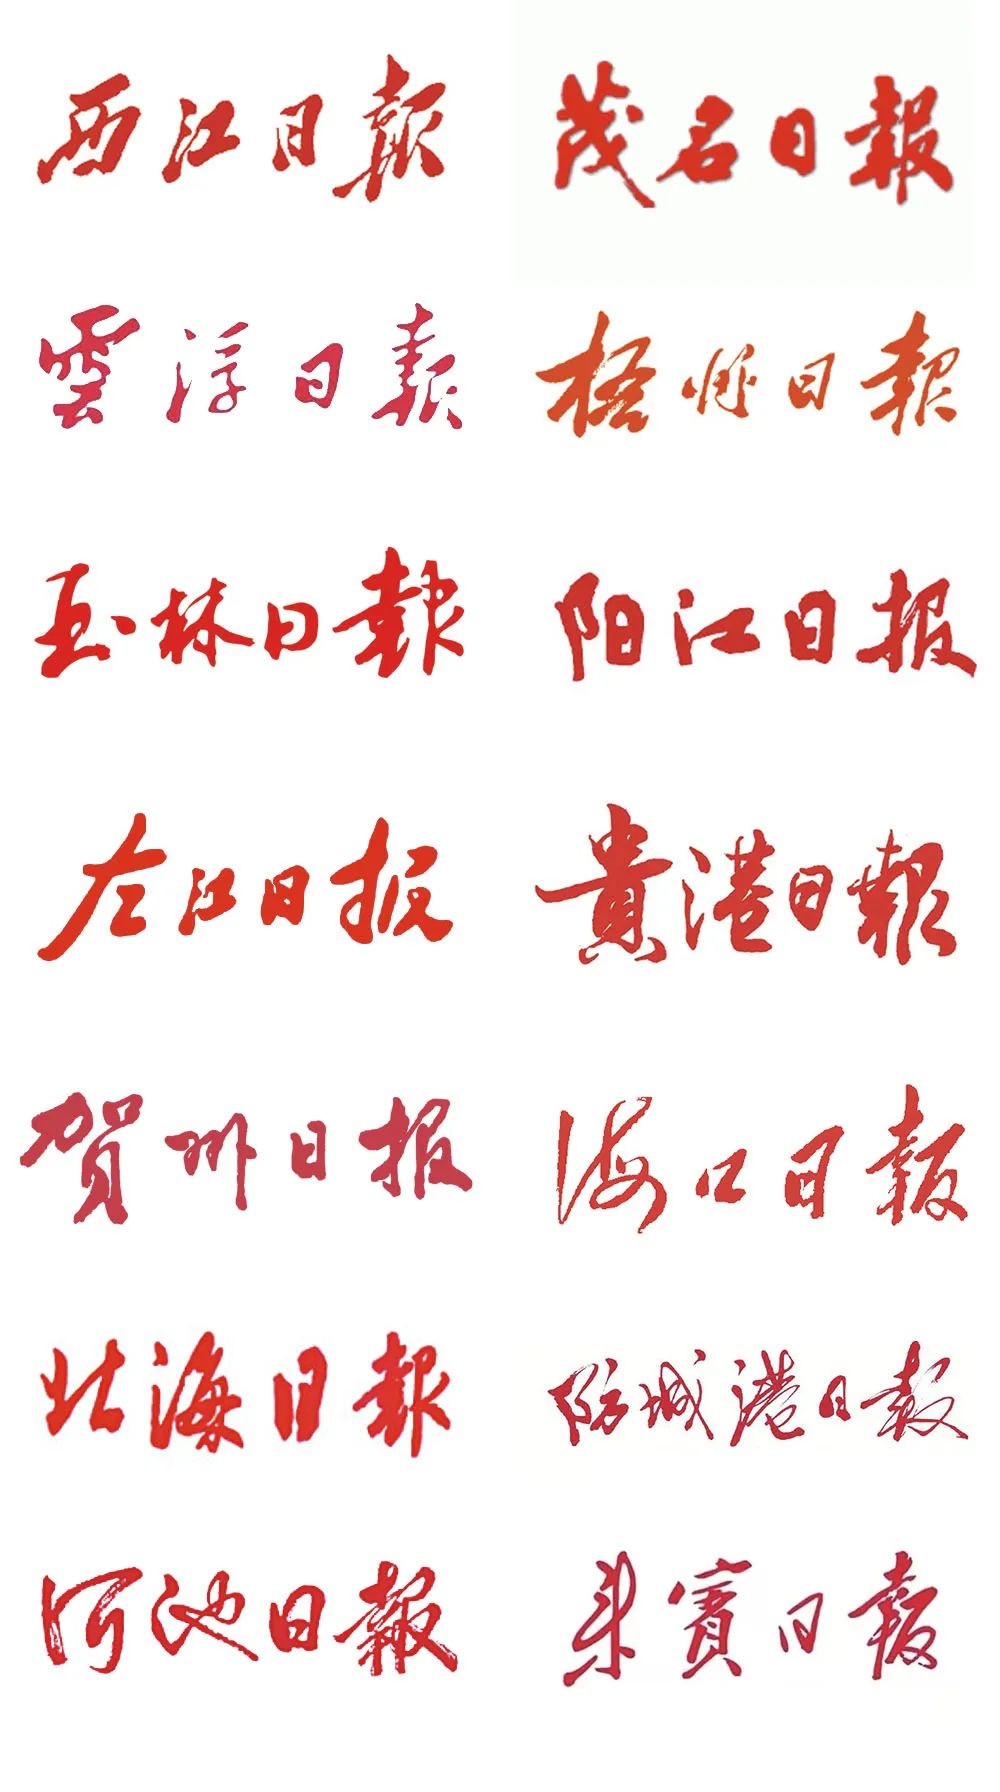 西江日報
茂名日報
雲浮日報
梧州日報
玉林日報
阳江日报
左江日报
貴港日報
贺州日报
海口日報
北海日報
防城港日報
河池日報
来賓日報